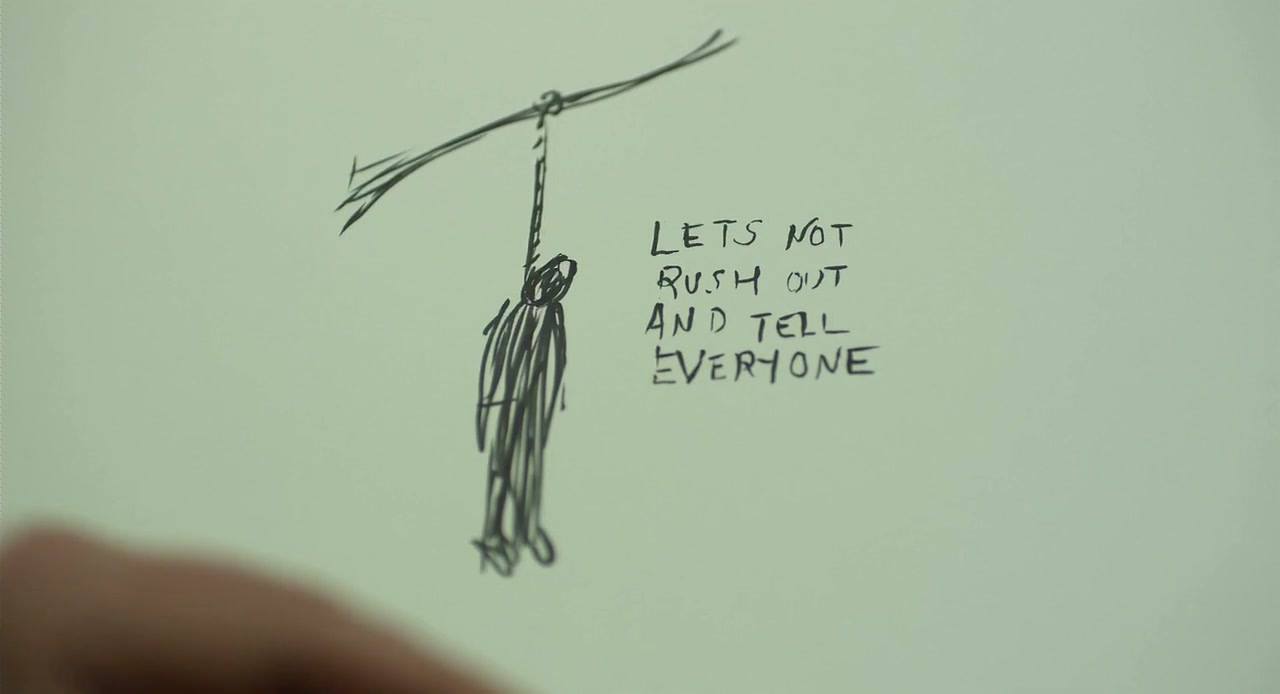 LETS NOT
RUSH OUT
AND TELL
EVERYONE